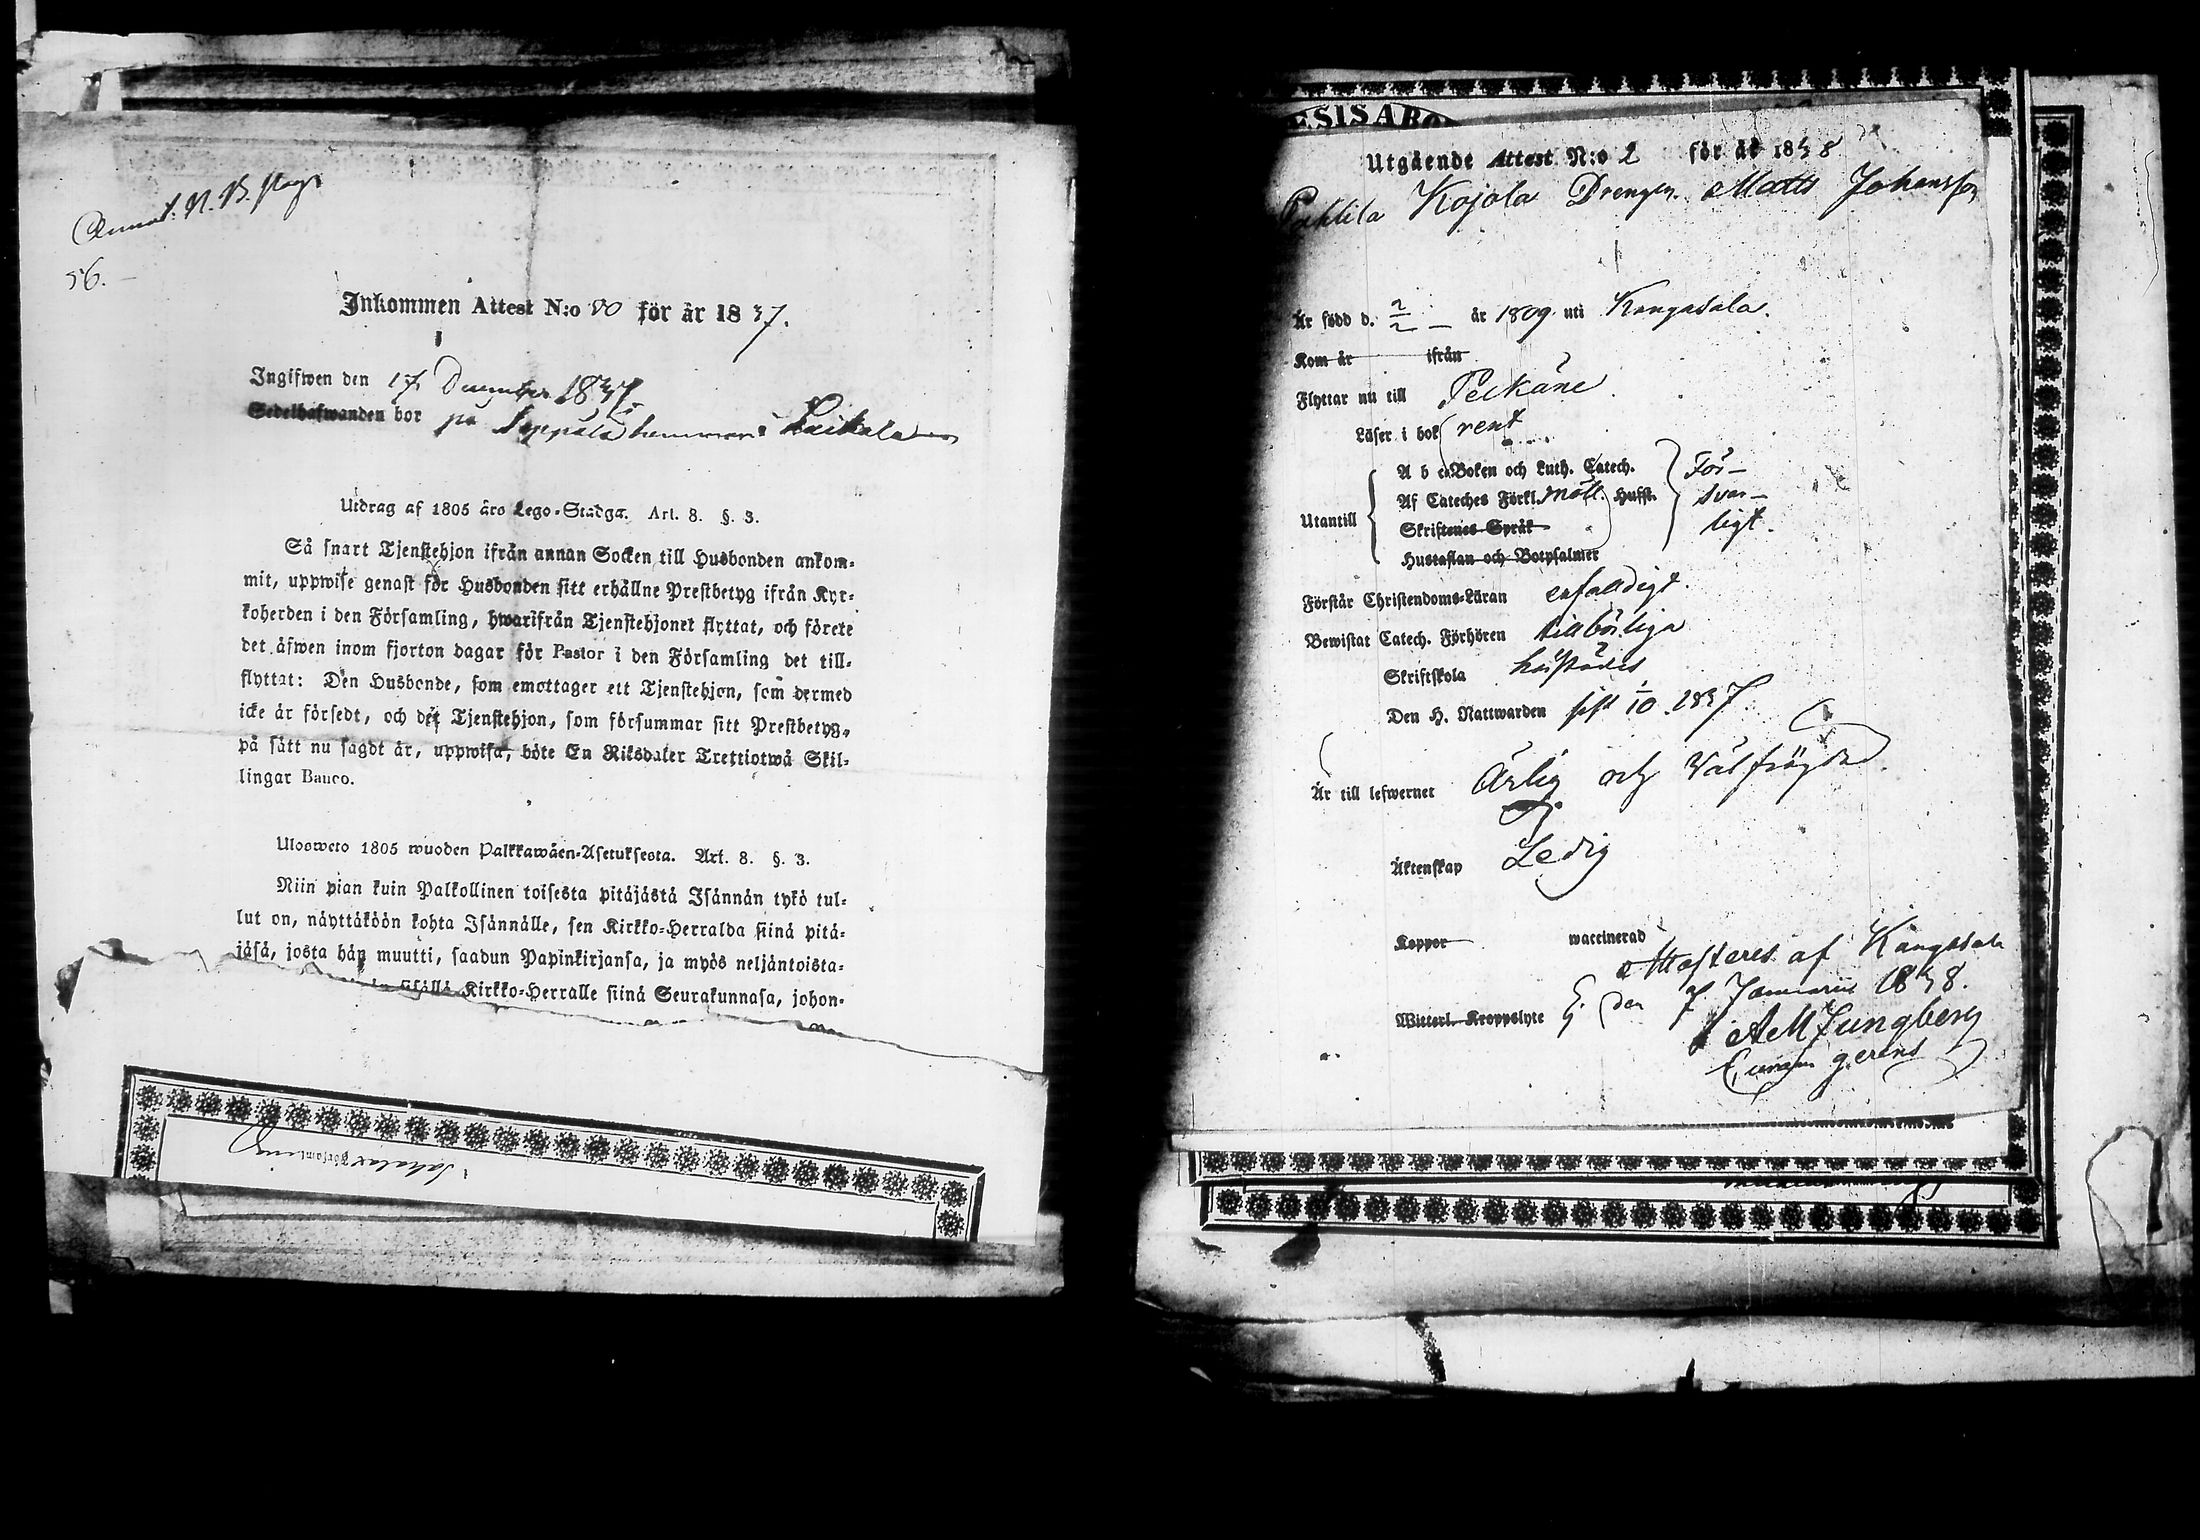 Annot. N. B. pag.
56.
Inkommen Attest N:o 80 för år 1837.
Ingifwen den 17 December 1837
Sedelhafwanden bor på Seppälä hemman i Laikala
Utdrag af 1805 års Lego-Stadga. Art. 8. §. 3.
Så snart Tjenstehjon ifrån annan Socken till Husbonden ankom-
mit, uppwise genast för Husbonden sitt erhållne Prestbetyg ifrån Kyr-
koherden i den Församling, hwarifrån Tjenstehjonet flyttat, och förete
det äfwen inom fjorton dagar för Pastor i den Församling det till-
flyttat: Den Husbonde, som emottager ett Tjenstehjon, som dermed
icke är försedt, och det Tjenstehjon, som försummar sitt Prestbetyg,
på sätt nu sagdt är, uppwisa, böte En Riksdaler Trettiotwå Skil-
lingar Banco.
Ulosweto 1805 wuoden Palkkawäen-Asetuksesta. Art. 8. §. 3.
Niin pian kuin Palkollinen toisesta pitäjästä Isännän tykö tul-
lut on, näyttäköön kohta Isännälle, sen Kirkko-Herralda siinä pitä-
jäsä, josta hän muutti, saadun Papinkirjansa, ja myös neljäntoista-
sisällä Kirkko-Herralle siinä Seurakunnasa, johon-
Sahalax Församling
ESIS ABO
Utgående Attest N:o 2 för år 1838
Kojola Drengen Matts Johansson
Är född d. 2/2 år 1809 uti Kangasala.
Kom år ifrån
Flyttar nu till Pelkäne
Läser i bok rent
Utantill
A b c-Boken och Luth. Catech.
Af Cateches Förkl. Möll. Hufst.
Skriftenes Språk
Hustaflan och Botpsalmer
För-
svar-
ligt.
Förstår Christendoms-Läran enfaldigt
Bewistat Catech. Förhören tillbörliga
Skriftskola härstädes
Den H. Nattwarden sist 1/10 1837
Är till lefwernet Ärlig och Välfrägdad
Äktenskap Ledig
Koppor waccinerad
Attesteres af Kangasala
Witterl. Kroppslyte Ej den 7 Januarii 1838.
A M Ljungberg
Curam gerens